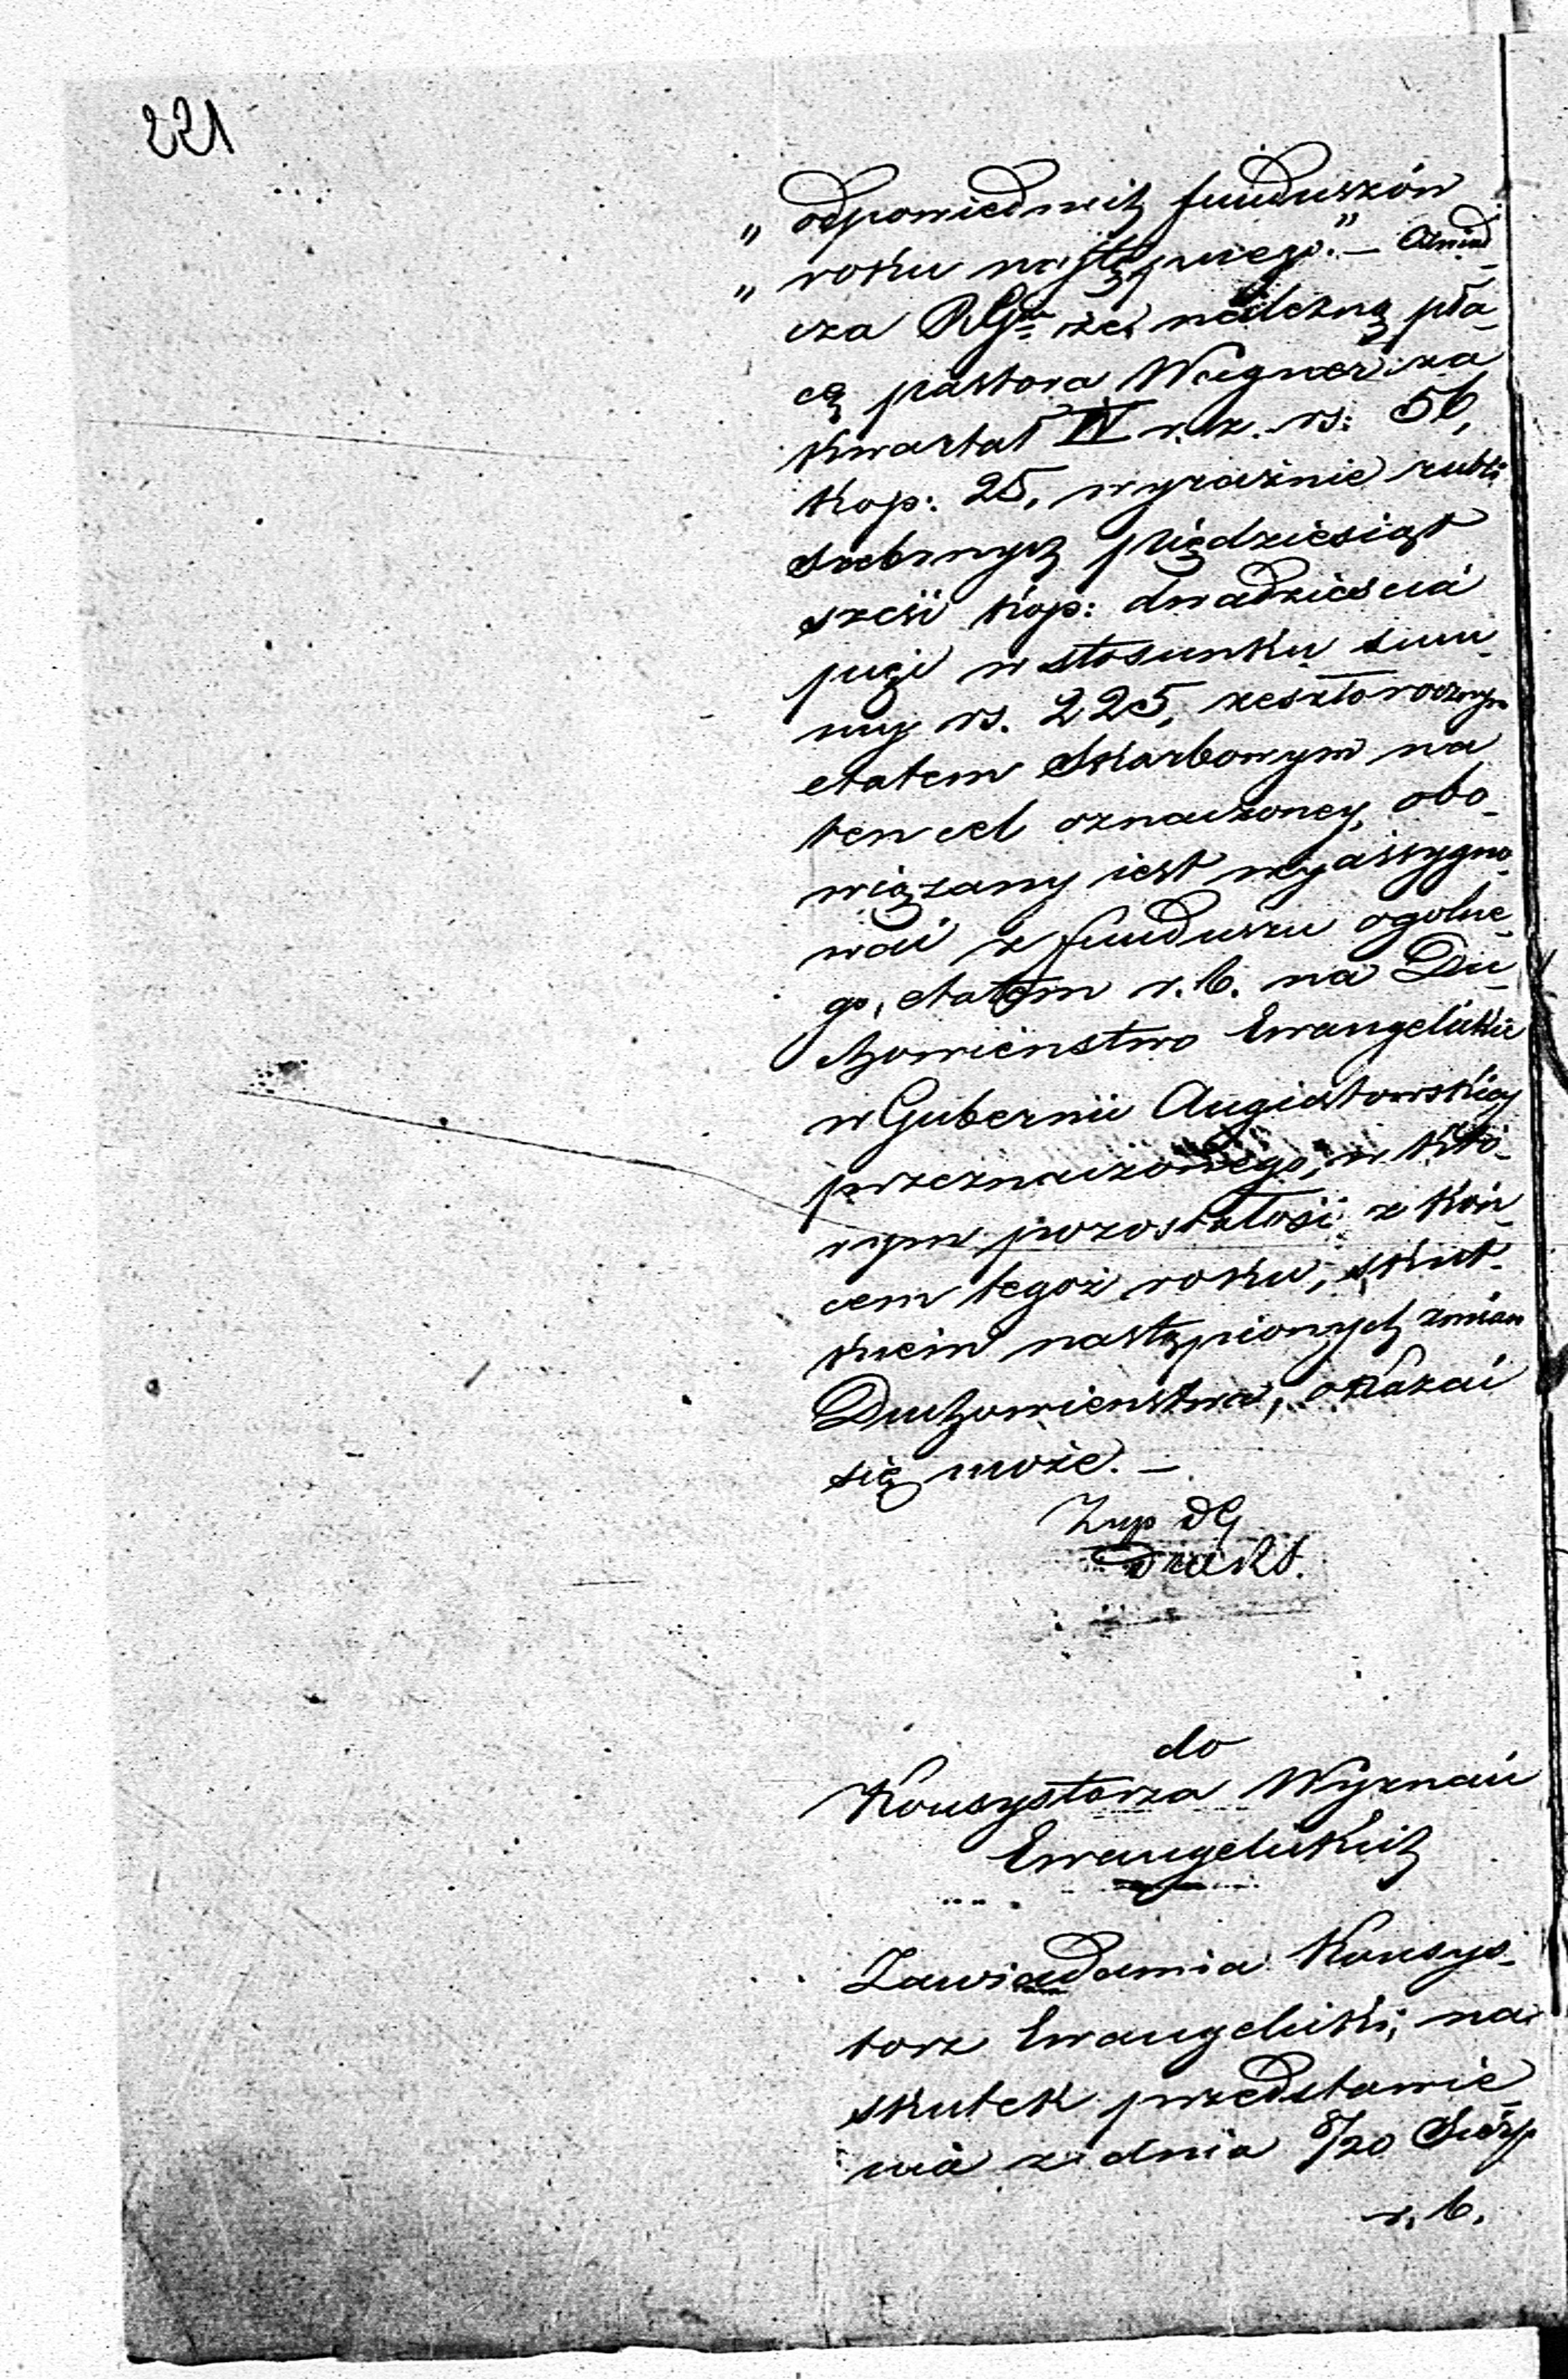 221
„ odpowiednich funduszów
„ roku następnego." —
cza RGu że należną pła-
cę pastora Wagner za
kwartał IV r. z. rs: 56,
kop: 25, wyraźnie rubli
srebrnych pięćdziesiąt
sześć kop: dwadzieścia
pięć w stosunku sum-
my rs. 225, zeszłorocznym
etatem Skarbowym na
ten cel oznaczoney, obo-
wiązany iest wyassygno-
wać z funduszu ogólne-
go, etatem r. b. na Du-
chowieństwo Ewangelickie
w Gubernii Augustowskiey
przeznaczonego, w któ-
rym pozostałość z koń-
cem tegoż roku, skut-
kiem nastąpionych zmian
Duchowieństwa, okazać
się może. —
do
Konsystorza Wyznań
Ewangelickich
Zawiadamia Konsys-
torz Ewangelicki, na
skutek przedstawie-
nia z dnia 8/20 Sierp
r. b.